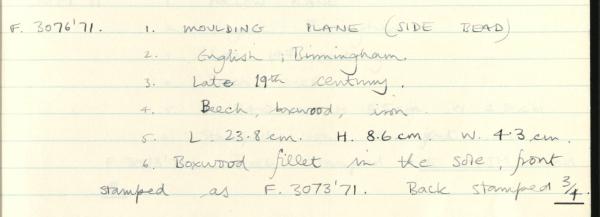 F. 3076'71. 1. MOULDING PLANE (SIDE BEAD)
2. English, Birmingham.
3. Late 19th century.
4. Beech, boxwood, iron
5. L 23.8 cm. H. 8.6 cm W. 4.3 cm.
6. Boxwood fillet in the sole, front
stamped as F. 3073'71. Back stamped 3/4.